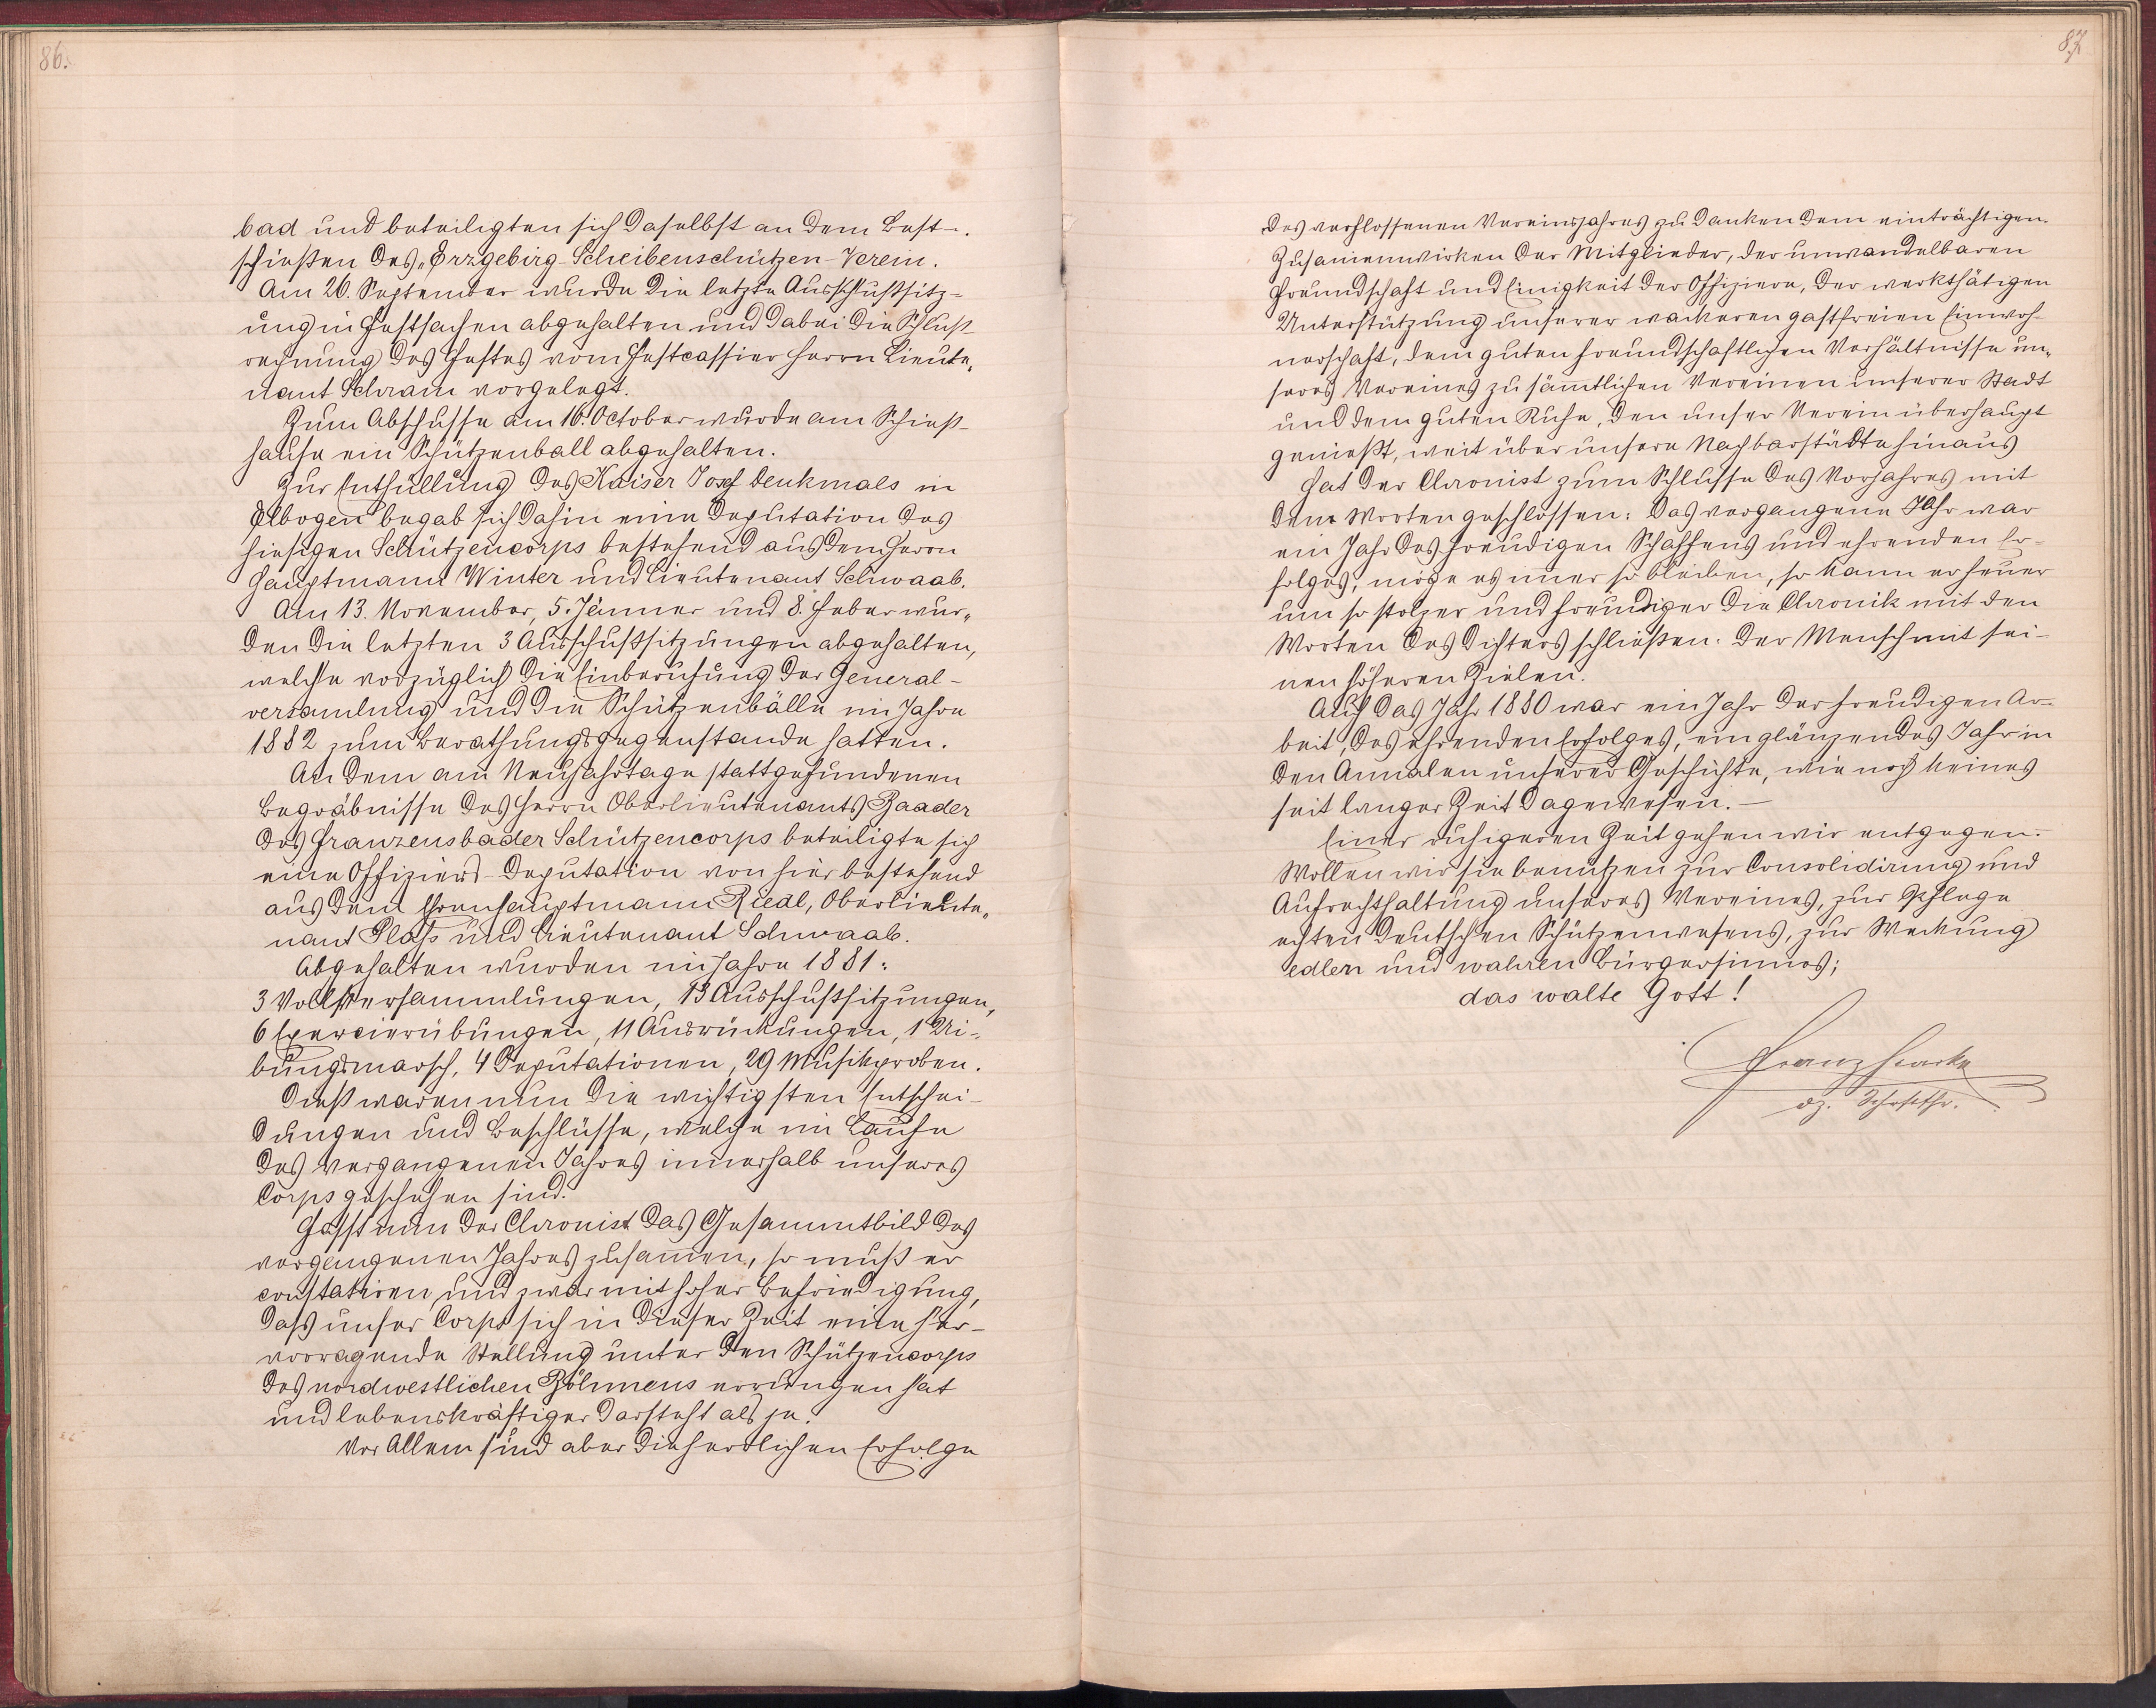 86.
bad und beteiligten sich daselbst an dem Best-
schießen des „Erzgebirg-Scheibenschützen-Verein.
Am 26. September wurde die letzte Ausschußsitz-
ung in Festsachen abgehalten und dabei die Schluß
rechnung des Festes vom Festcassier Herrn Lieute„
nant Schram vorgelegt.
Zum Abschusse am 16. October wurde am Schieß-
hause ein Schützenball abgehalten.
Zur Enthüllung des Kaiser Josef Denkmals in
Elbogen begab sich dahin eine Deputation des
hiesigen Schützencorps bestehend aus dem Herrn
Hauptmann Winter und Lieutenant Schwaab.
Am 13. November, 5. Jänner und 8. Feber wur„
den die letzten 3 Ausschußsitzungen abgehalten,
welche vorzüglich die Einberufung der General-
versamlung und die Schützenbälle im Jahre
1882 zum Berathungsgegenstande hatten.
An dem am Neujahrtage stattgefundenen
Begräbnisse des Herrn Oberlieutenants Baader
des Franzensbader Schützencorps beteiligte sich
eine Offiziers-Deputation von hier bestehend
aus dem Ehrenhauptmann Riedl, Oberlieute„
nant Plaß und Lieutenant Schwaab.
Abgehalten wurden im Jahre 1881:
3 Vollversammlungen, 13 Ausschußsitzungen,
6 Exercierübungen, 11 Ausrückungen, 1 Ui-
bungsmarsch, 4 Deputationen, 29 Musikproben.
Dieß waren nun die wichtigsten Entschei-
dungen und Beschlüsse, welche im Laufe
des vergangenen Jahres innerhalb unseres
Corps geschehen sind.
Fasst nun der Chronist das Gesammtbild des
vergangenen Jahres zusamen, so muß er
constatiren, und zwar mit hoher Befriedigung,
daß unser Corps sich in dieser Zeit eine her-
vorragende Stellung unter den Schützencorps
des nordwestlichen Böhmens errungen hat
und lebenskräftiger dasteht als je.
Vor Allem sind aber die herrlichen Erfolge
87
des verflossenen Vereinsjahres zu danken dem einträchtigen
Zusamenwirken der Mitglieder, der unwandelbaren
Freundschaft und Einigkeit der Offiziere, der werkthätigen
Unterstützung unserer wackeren gastfreien Einwoh-
nerschaft, dem guten freundschaftlichen Verhältnisse un„
seres Vereines zu sämtlichen Vereinen unserer Stadt
und dem guten Rufe, den unser Verein überhaupt
genießt, weit über unsere Nachbarstädte hinaus
Hat der Chronist zum Schlusse des Vorjahres mit
den Worten geschlossen: Das vergangene Jahr war
ein Jahr des freudigen Schaffens und ehrenden Er-
folges, möge es imer so bleiben, so kann er heuer
um so stolzer und freudiger die Chronik mit den
Worten des Dichters schließen: Der Mensch mit sei-
nen höheren Zielen.
Auch das Jahr 1880 war ein Jahr der freudigen Ar-
beit, des ehrenden Erfolges, ein glänzendes Jahr in
den Annalen unserer Geschichte, wie noch keines
seit langer Zeit dagewesen.—
Einer ruhigeren Zeit gehen wir entgegen.
Wollen wir sie benützen zur Consolidirung und
Aufrechthaltung unseres Vereines, zur Pflege
echten deutschen Schützenwesens, zur Weckung
edlen und wahren Bürgersinnes;
das walte Gott!
Franz
dz. Schriftfhr.